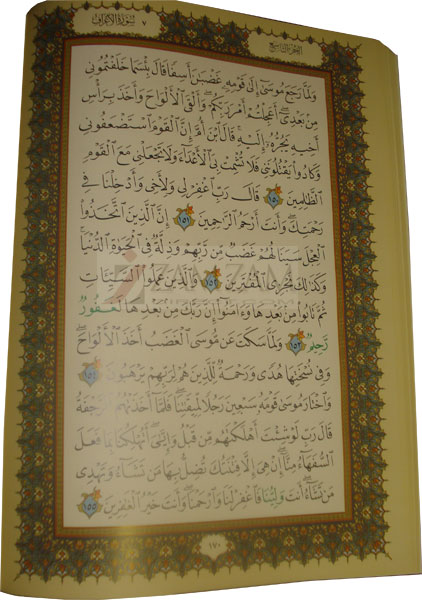 الجزء التاسع
سورة الأعراف ٧
وَلَمَّا رَجَعَ مُوسَىٰٓ إِلَىٰ قَوْمِهِۦ غَضْبَٰنَ أَسِفًا قَالَ بِئْسَمَا خَلَفْتُمُونِي
مِنۢ بَعْدِيٓۖ أَعَجِلْتُمْ أَمْرَ رَبِّكُمْۖ وَأَلْقَى ٱلْأَلْوَاحَ وَأَخَذَ بِرَأْسِ
أَخِيهِ يَجُرُّهُۥٓ إِلَيْهِۚ قَالَ ٱبْنَ أُمَّ إِنَّ ٱلْقَوْمَ ٱسْتَضْعَفُونِي
وَكَادُوا۟ يَقْتُلُونَنِي فَلَا تُشْمِتْ بِيَ ٱلْأَعْدَآءَ وَلَا تَجْعَلْنِي مَعَ ٱلْقَوْمِ
ٱلظَّٰلِمِينَ ١٥٠ قَالَ رَبِّ ٱغْفِرْ لِي وَلِأَخِي وَأَدْخِلْنَا فِي
رَحْمَتِكَۖ وَأَنتَ أَرْحَمُ ٱلرَّٰحِمِينَ ١٥١ إِنَّ ٱلَّذِينَ ٱتَّخَذُوا۟
ٱلْعِجْلَ سَيَنَالُهُمْ غَضَبٌ مِّن رَّبِّهِمْ وَذِلَّةٌ فِي ٱلْحَيَوٰةِ ٱلدُّنْيَاۚ
وَكَذَٰلِكَ نَجْزِي ٱلْمُفْتَرِينَ ١٥٢ وَٱلَّذِينَ عَمِلُوا۟ ٱلسَّيِّـَٔاتِ
ثُمَّ تَابُوا۟ مِنۢ بَعْدِهَا وَءَامَنُوٓا۟ إِنَّ رَبَّكَ مِنۢ بَعْدِهَا لَغَفُورٌ
رَّحِيمٌ ١٥٣ وَلَمَّا سَكَتَ عَن مُّوسَى ٱلْغَضَبُ أَخَذَ ٱلْأَلْوَاحَۖ
وَفِي نُسْخَتِهَا هُدًى وَرَحْمَةٌ لِّلَّذِينَ هُمْ لِرَبِّهِمْ يَرْهَبُونَ ١٥٤
وَٱخْتَارَ مُوسَىٰ قَوْمَهُۥ سَبْعِينَ رَجُلًا لِّمِيقَٰتِنَاۖ فَلَمَّآ أَخَذَتْهُمُ ٱلرَّجْفَةُ
قَالَ رَبِّ لَوْ شِئْتَ أَهْلَكْتَهُم مِّن قَبْلُ وَإِيَّٰيَۖ أَتُهْلِكُنَا بِمَا فَعَلَ
ٱلسُّفَهَآءُ مِنَّآۖ إِنْ هِيَ إِلَّا فِتْنَتُكَ تُضِلُّ بِهَا مَن تَشَآءُ وَتَهْدِي
مَن تَشَآءُۖ أَنتَ وَلِيُّنَا فَٱغْفِرْ لَنَا وَٱرْحَمْنَاۖ وَأَنتَ خَيْرُ ٱلْغَٰفِرِينَ ١٥٥
١٧٠
ZAMZAM